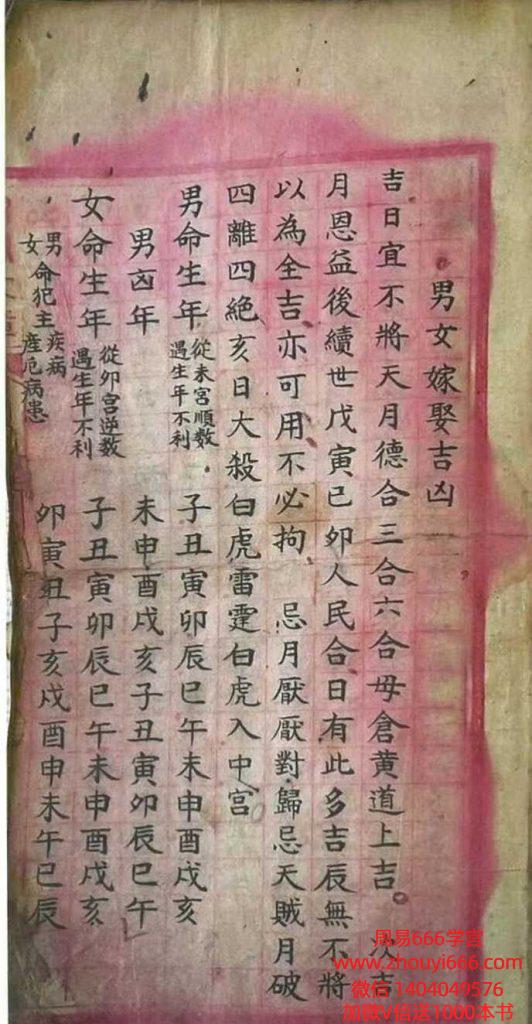 男女嫁娶吉凶
吉日宜不將天月德合三合六合母倉黄道上吉。次吉
月恩益後續世戊寅已卯人民合日有此多吉辰無不將
以為全吉亦可用不必拘 忌月厭厭對歸忌天賊月破
四離四絶亥日大殺白虎雷霆白虎入中宫
男命生年 從未宮順數 子丑寅卯辰巳午未申酉戌亥
遇生年不利
男凶年 未申酉戌亥子丑寅卯辰巳午
女命生年 從卯宫逆数 子丑寅卯辰巳午未申酉戌亥
遇生年不利
男命犯主疾病 卯寅丑子亥戌酉申未午巳辰
女 產厄病患
周易666学宫
www.zhouyi666.com
微信 1404049576
加微V信送1000本书